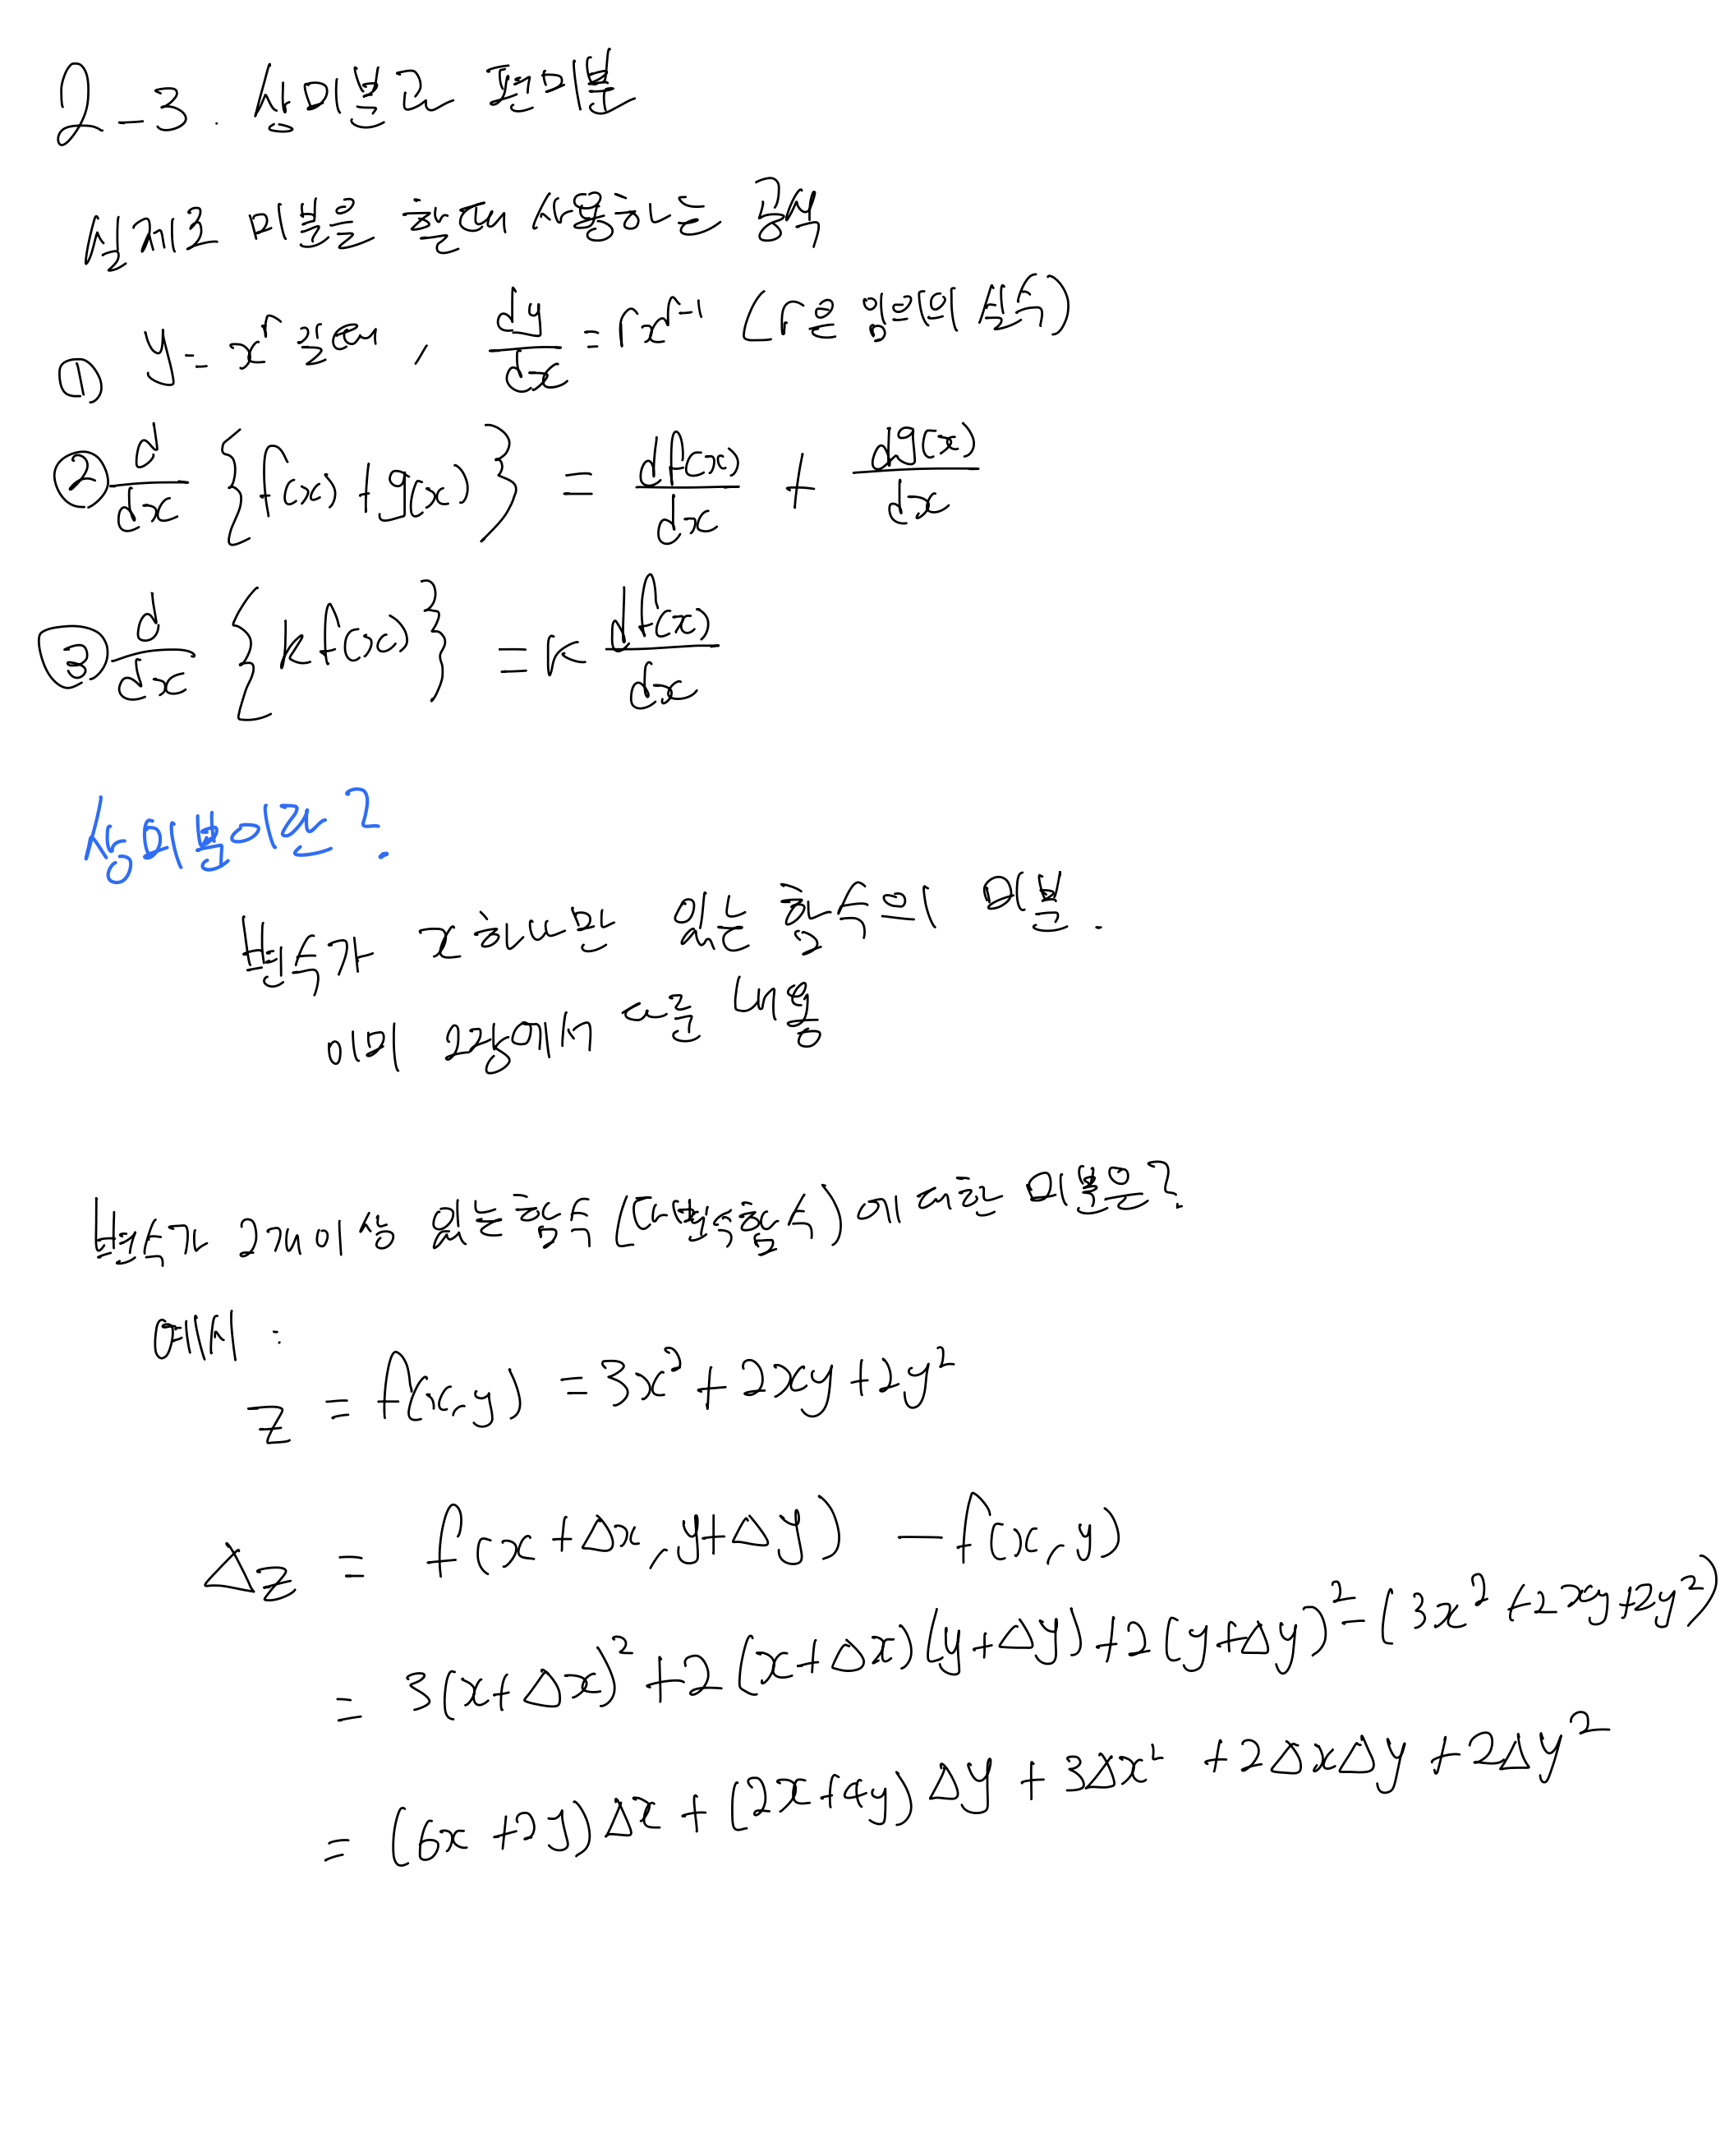 2-3. 상미분과 편미분
실제로 미분을 할때 사용하는 공식
① y = x^r 일때, dy/dx = rx^(r-1) (r은 임의의 실수)
② d/dx {f(x)+g(x)} = df(x)/dx + dg(x)/dx
③ d/dx {kf(x)} = k df(x)/dx
상미분이란?
변수가 x하나만 있는 함수의 미분.
이미 2장에서 다룬 내용
변수가 2개이상 있는함수(다변수함수)에 대한 미분은?
예시:
z = f(x,y) = 3x²+2xy+2y²
Δz = f(x+Δx, y+Δy) - f(x,y)
= 3(x+Δx)²+2(x+Δx)(y+Δy)+2(y+Δy)²-(3x²+2xy+2y²)
= (6x+2y)Δx+(2x+4y)Δy+3Δx²+2ΔxΔy+2Δy²